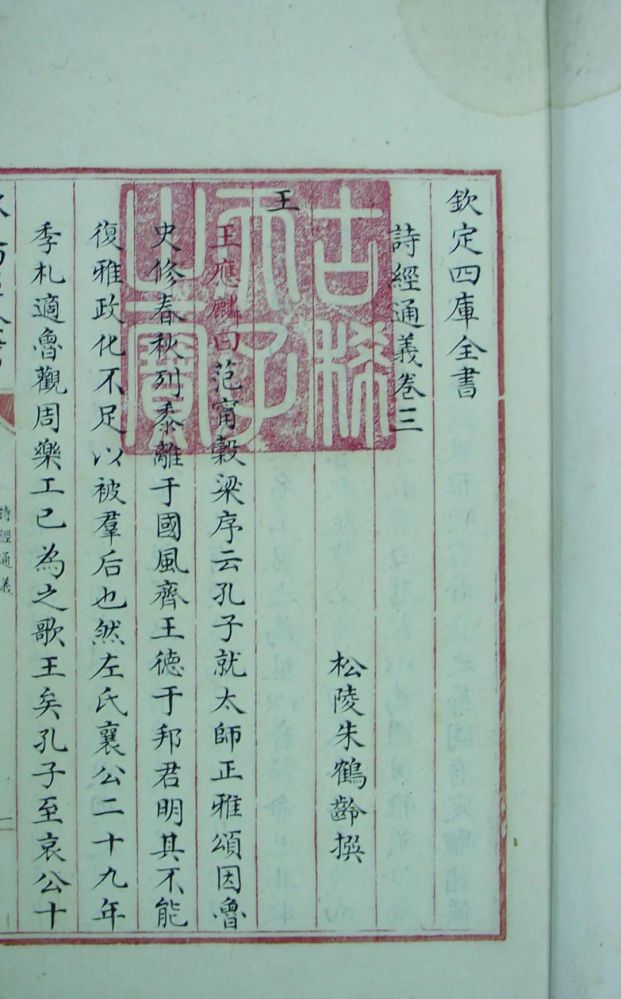 欽定四庫全書
詩經通義卷三
松陵朱鶴齡撰
王
王應麟曰范甯穀梁序云孔子就太師正雅頌因魯
史修春秋列黍離于國風齊王德于邦君明其不能
復雅政化不足以被羣后也然左氏襄公二十九年
季札適魯觀周樂工已為之歌王矣孔子至哀公十
詩經通義
古稀天子之寶